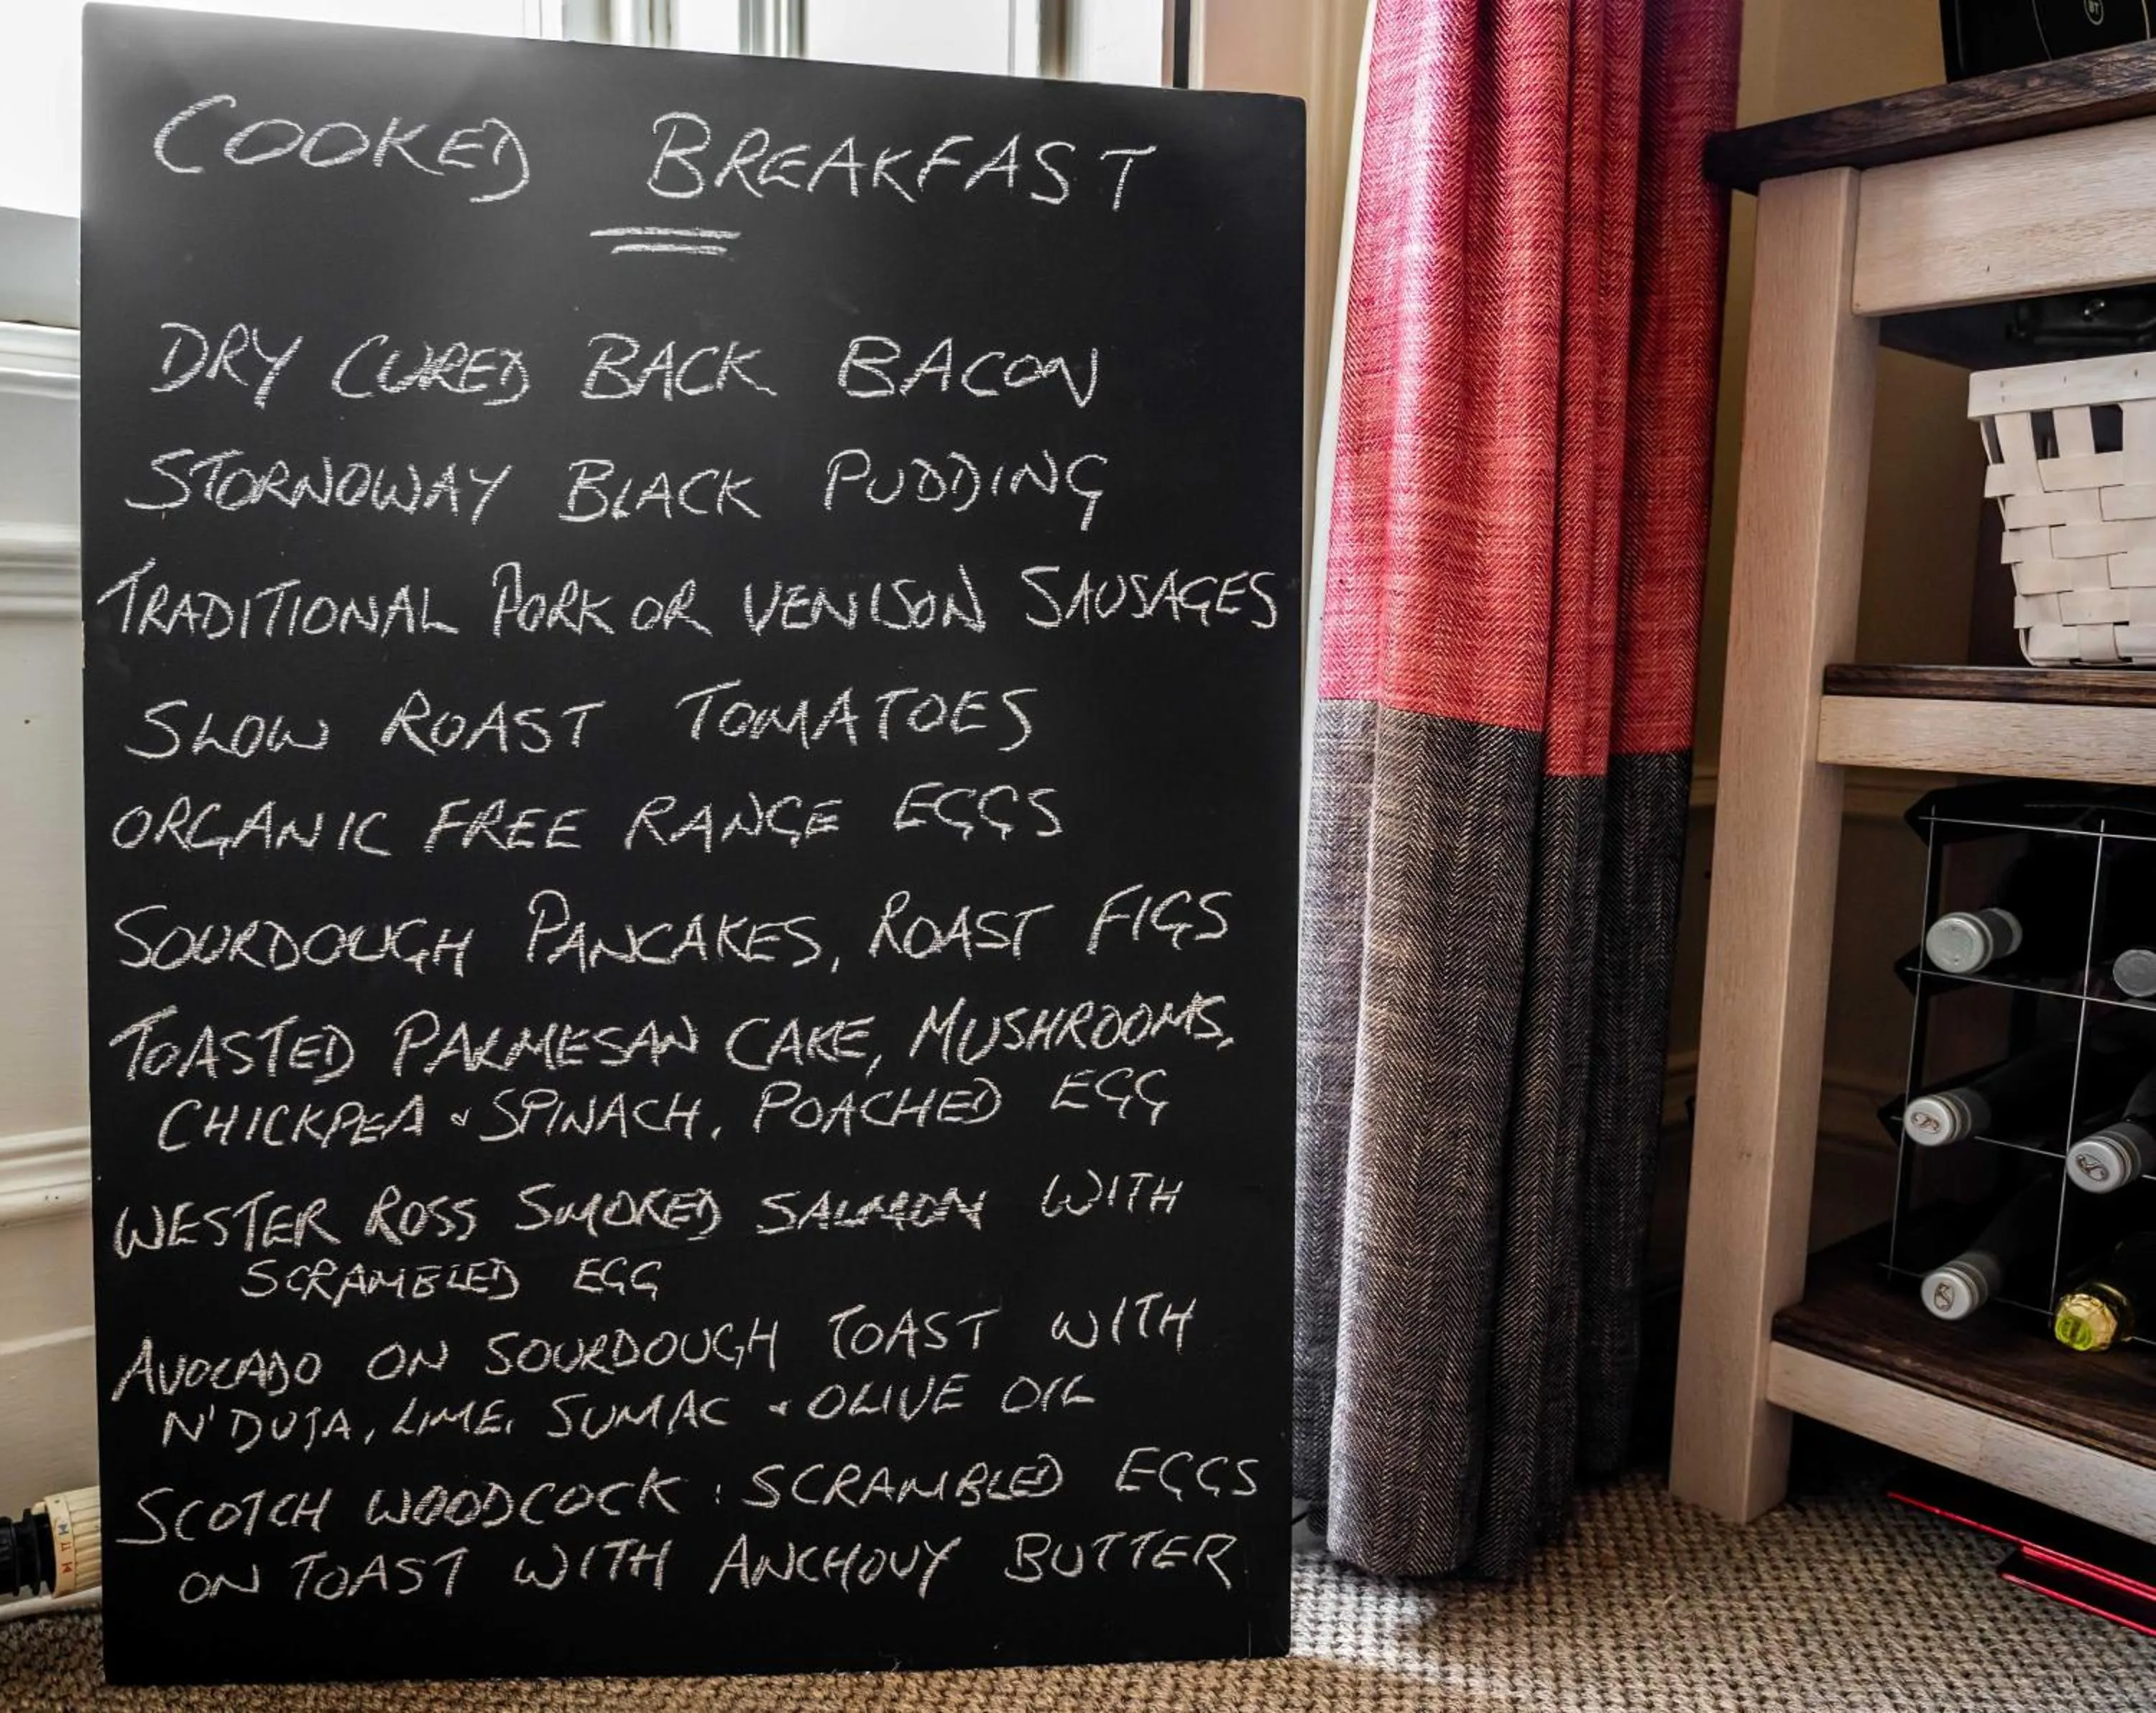 COOKED BREAKFAST
DRY CURED BACK BACON
STORNOWAY BLACK PUDDING
TRADITIONAL PORK OR VENISON SAUSAGES
SLOW ROAST TOMATOES
ORGANIC FREE RANGE EGGS
SOURDOUGH PANCAKES, ROAST FIGS
TOASTED PALMESAN CAKE, MUSHROOMS,
CHICKPEA & SPINACH, POACHED EGG
WESTER ROSS SMOKED SALMON WITH
SCRAMBLED EGG
AVOCADO ON SOURDOUGH TOAST WITH
N'DUJA, LIME, SUMAC & OLIVE OIL
SCOTCH WOODCOCK : SCRAMBLED EGGS
ON TOAST WITH ANCHOVY BUTTER
BT